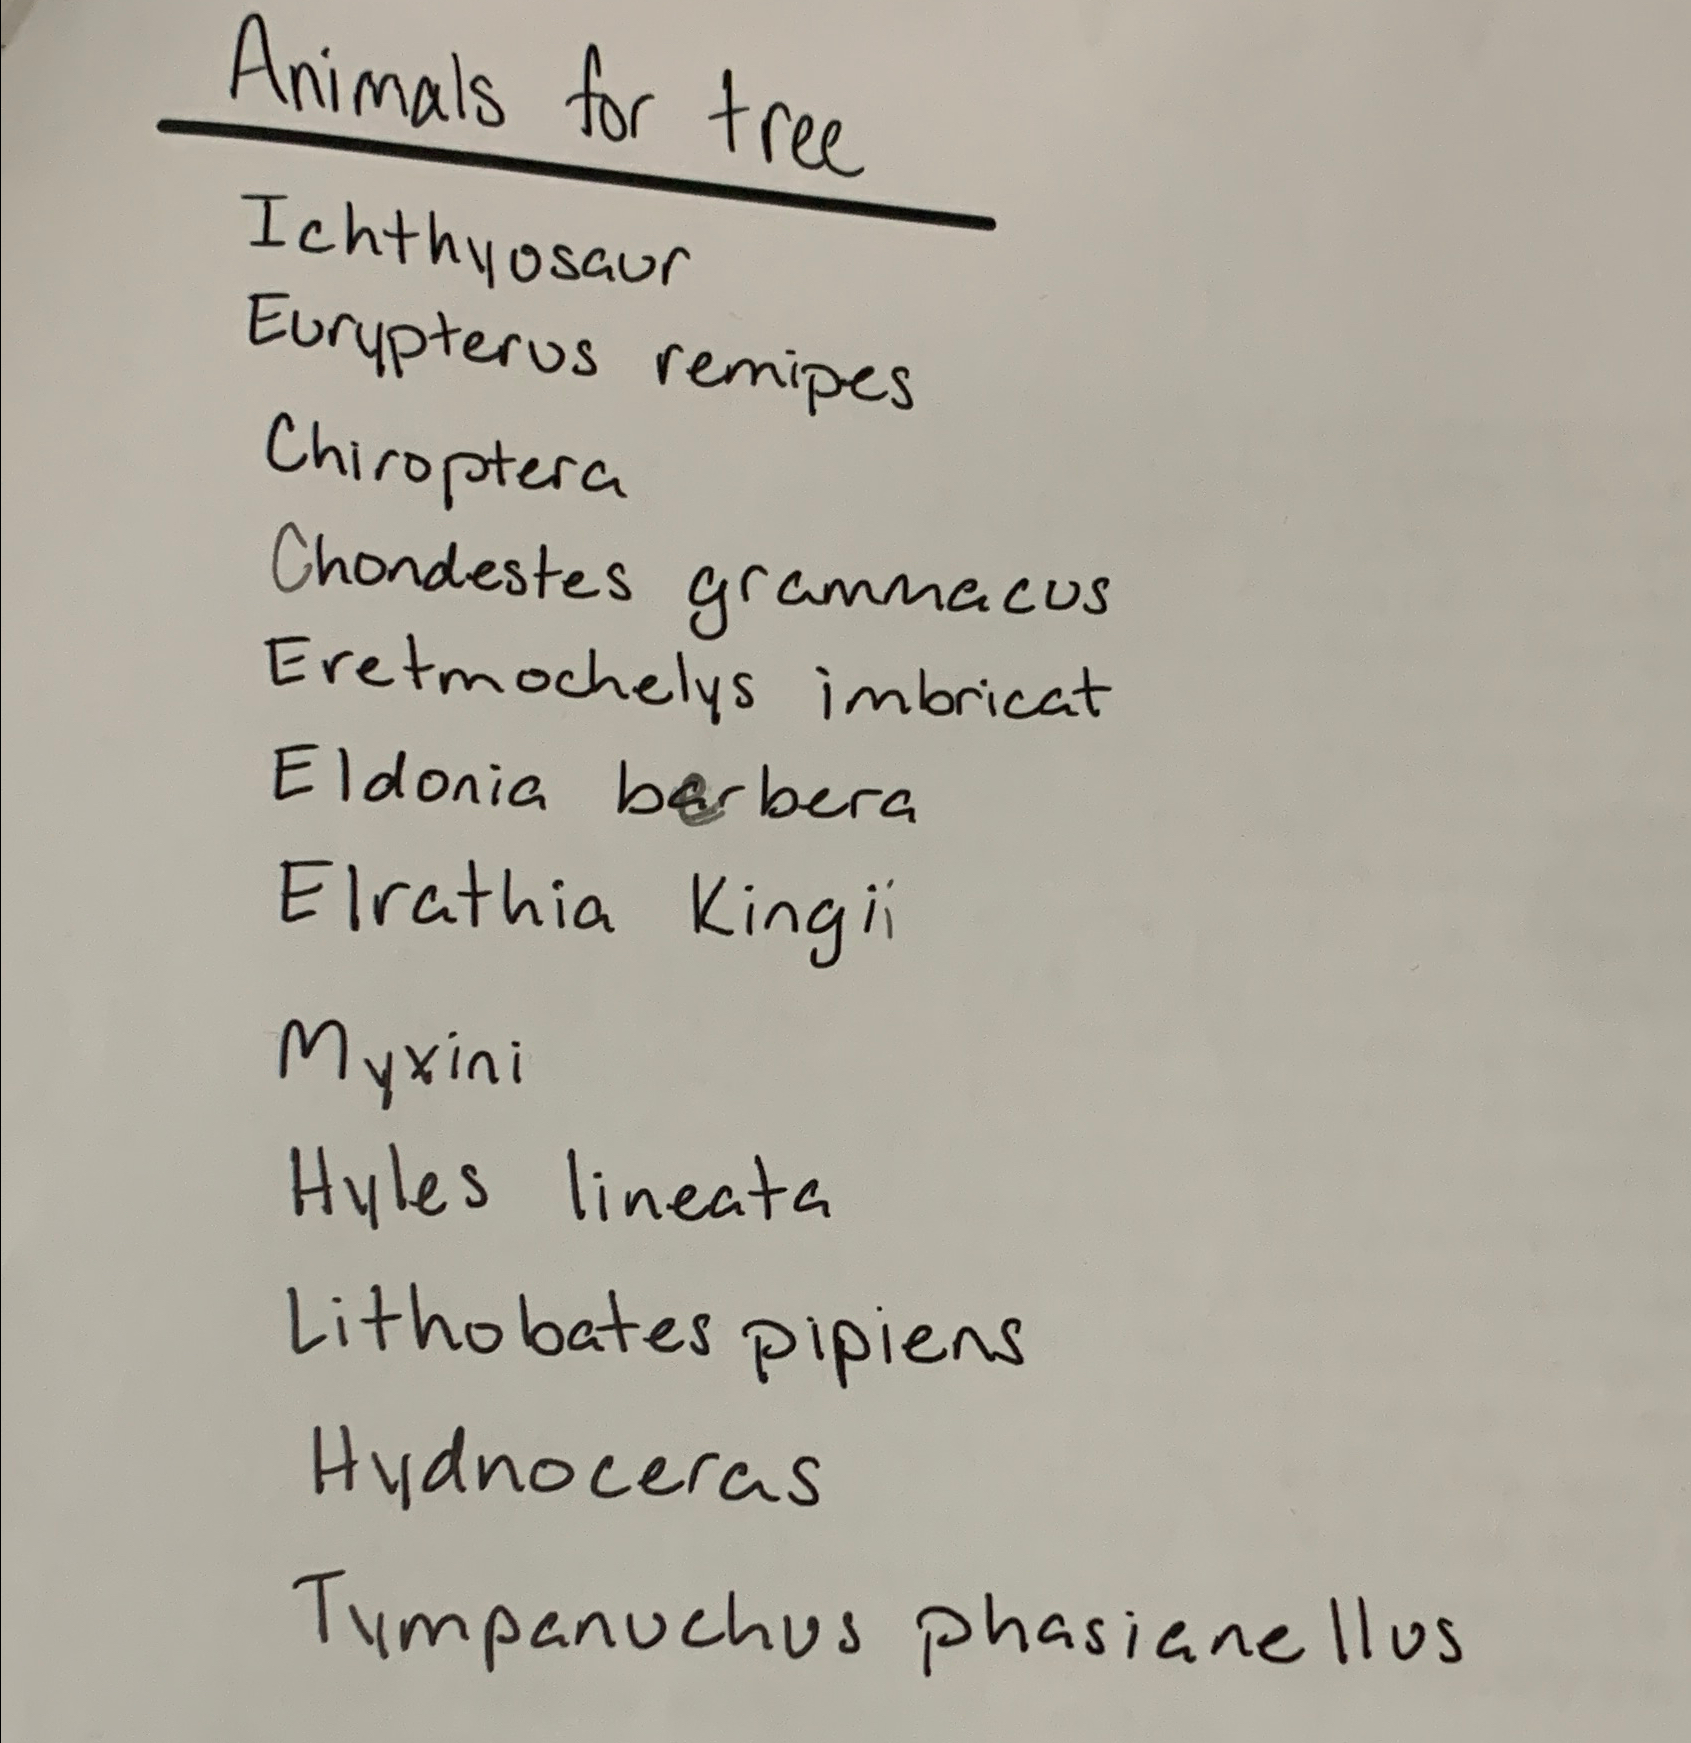 Animals for tree
Ichthyosaur
Eurypterus remipes
Chiroptera
Chondestes grammacus
Eretmochelys imbricat
Eldonia berbera
Elrathia Kingii
Myxini
Hyles lineata
Lithobates pipiens
Hydnoceras
Tympanuchus phasianellus